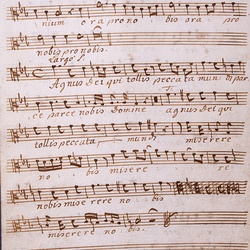 nium ora pro no bis ora pro
nobis pro nobis.
Largo
Agnus dei qui tollis peccata mundi par
ce parce nobis Domine agnus dei qui
tollis peccata mundi miserere
no bis misere re
nobis miserere no bis.
miserere no bis.